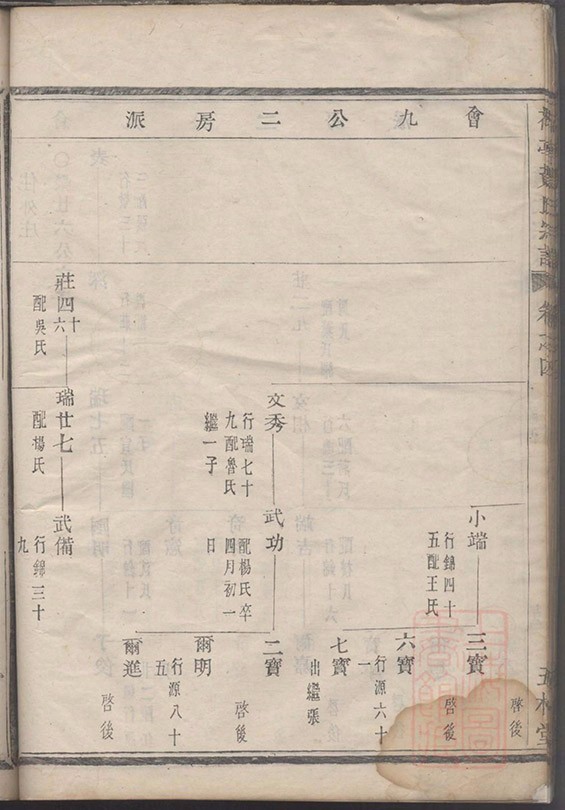 會九公二房派
啓後
小端
行錦四十
五配王氏
三寶
啓後
六寶
行源六十
一
七寶
出繼張
文秀
行瑞七十
九配魯氏
繼一子
武功
配楊氏卒
四月初一
日
二寶
啓後
爾明
行源八十
五
莊四十
六
配吳氏
瑞廿七
配楊氏
武備
行錦三十
九
爾進
啓後
卷之四
堂